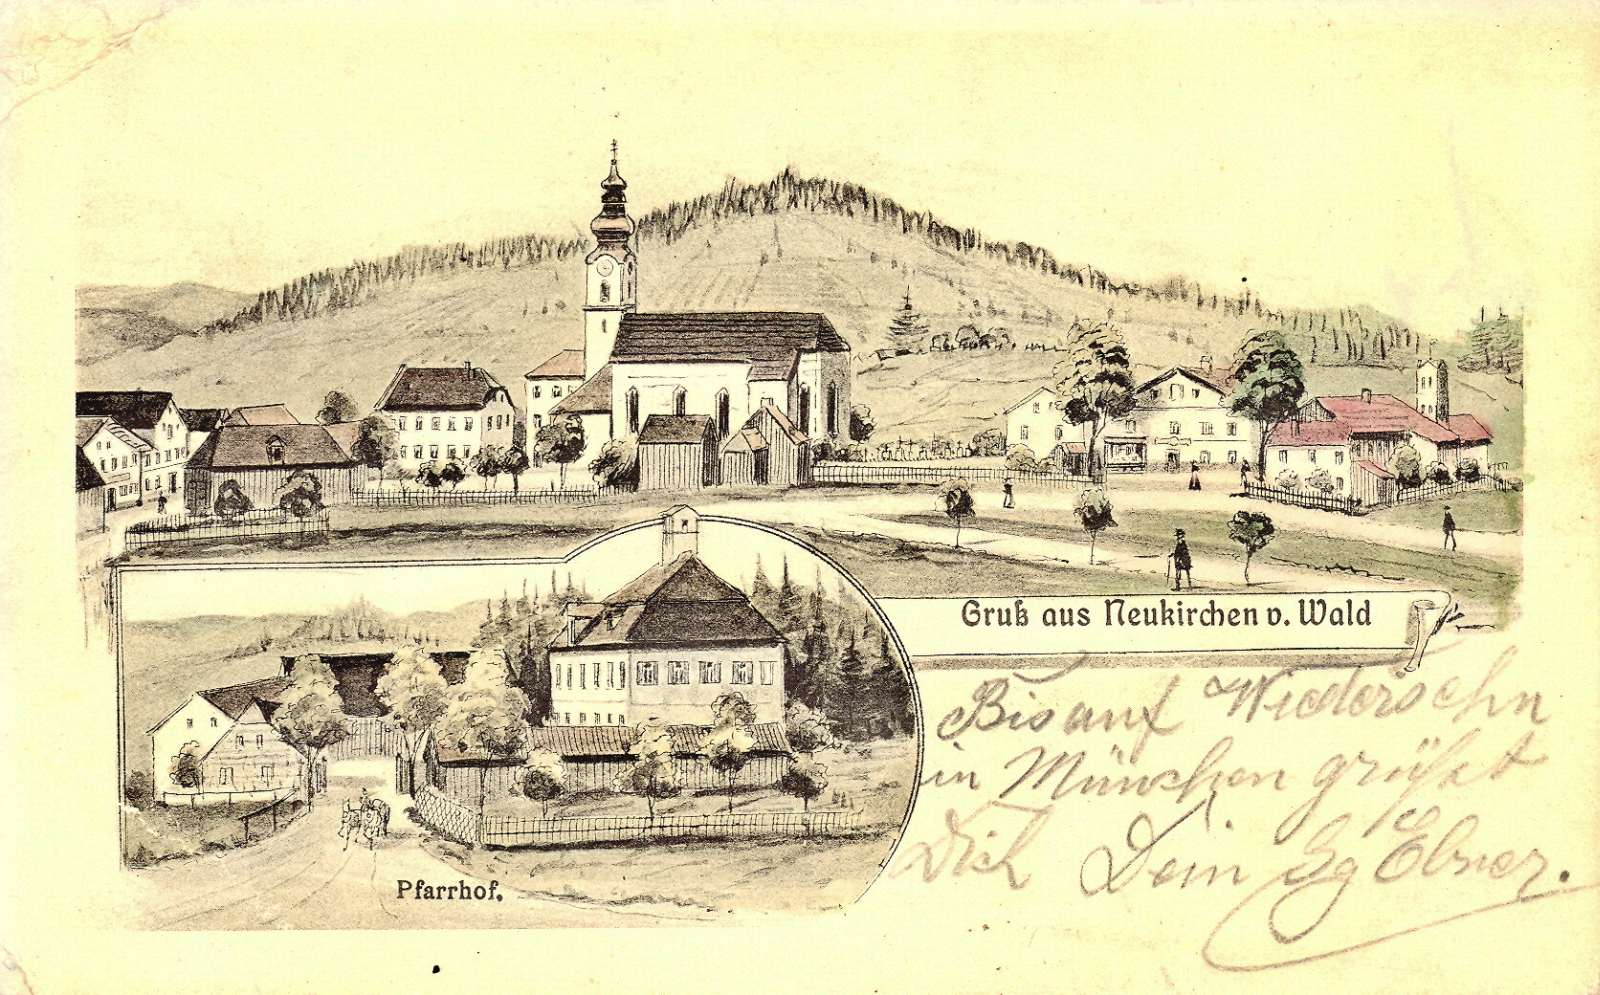 Gruß aus Neukirchen v. Wald
Bis auf Wiedersehn
in München grüßt
Dich Dein Sg Ebner.
Pfarrhof.